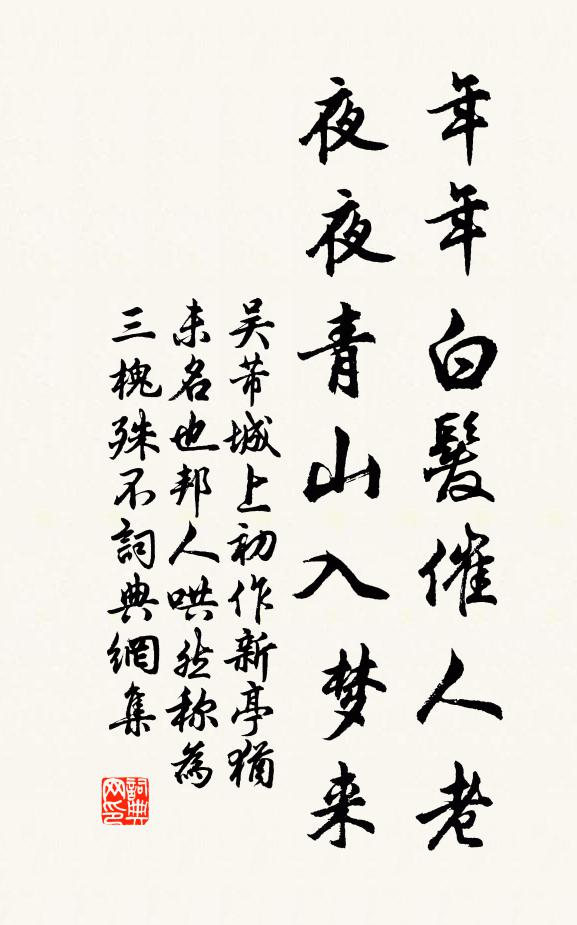 年年白髮催人老
夜夜青山入梦来
吴芾城上初作新亭猶
未名也邦人哄然称為
三槐殊不詞典網集
詞典
网印